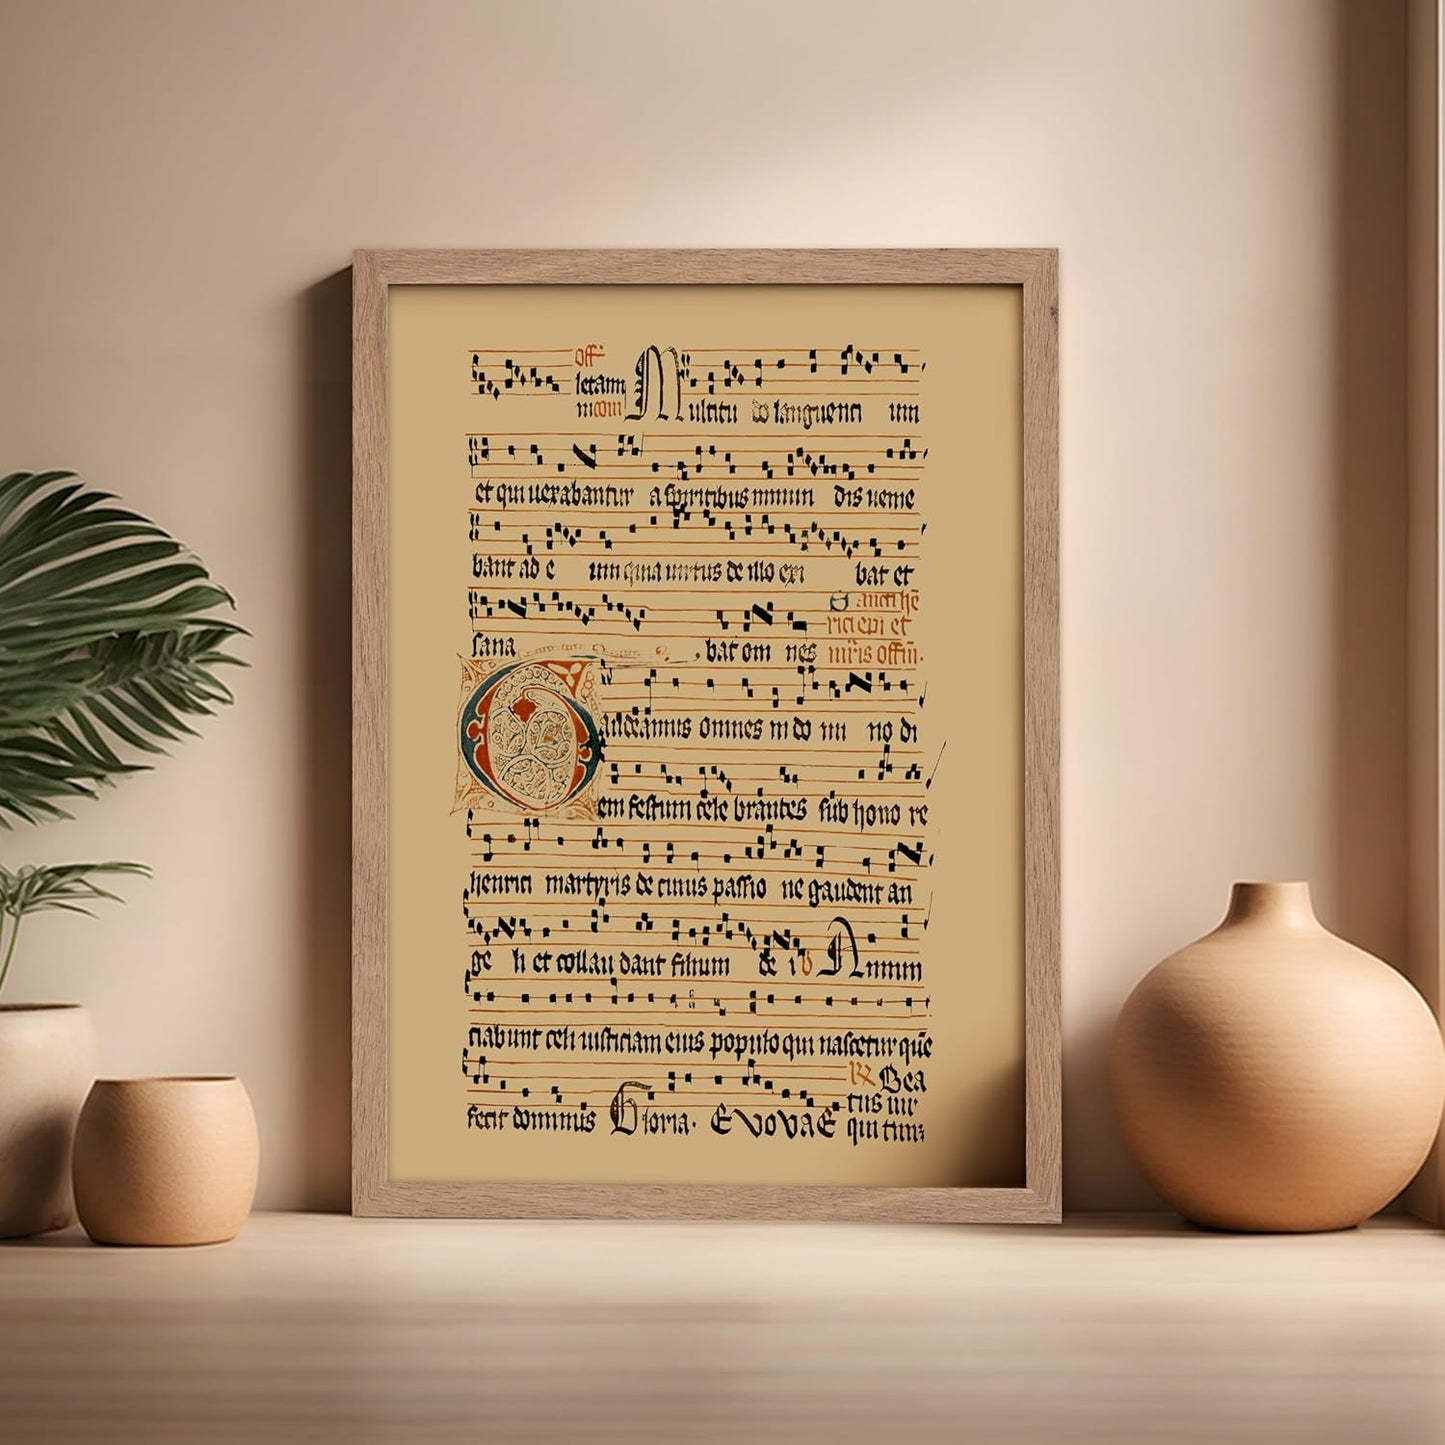 Off
letann
m com Multitu do languenti um
et qui uexabantur a spiritibus inmun dis ueme
bant ad e um quia uirtus de illo exi bat et
Sancti hē
rici epi et
sana bat om nes mr̄is offm̄.
Gaudeamus omnes in do mi no di
em festum cele brantes sub hono re
henrici martyris de cuius passio ne gaudent an
ge li et collau dant filium de i V Annun
ciabunt celi iusticiam eius populo qui nascetur quē
R Bea
tus uir
fecit dominus Gloria. EVOVAE qui tim